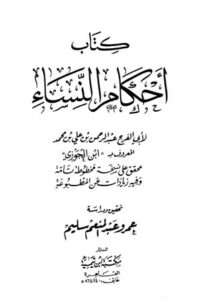 كتاب
أحكام النساء
لأبي الفرج عبد الرحمن بن علي بن محمد
المعروف بـ «ابن الجوزي»
محقق على نسخة مخطوطة تامة
وفيه زيادات عن المطبوعة
تحقيق ودراسة
عمرو عبد المنعم سليم
الناشر
مكتبة ابن تيمية
القاهرة